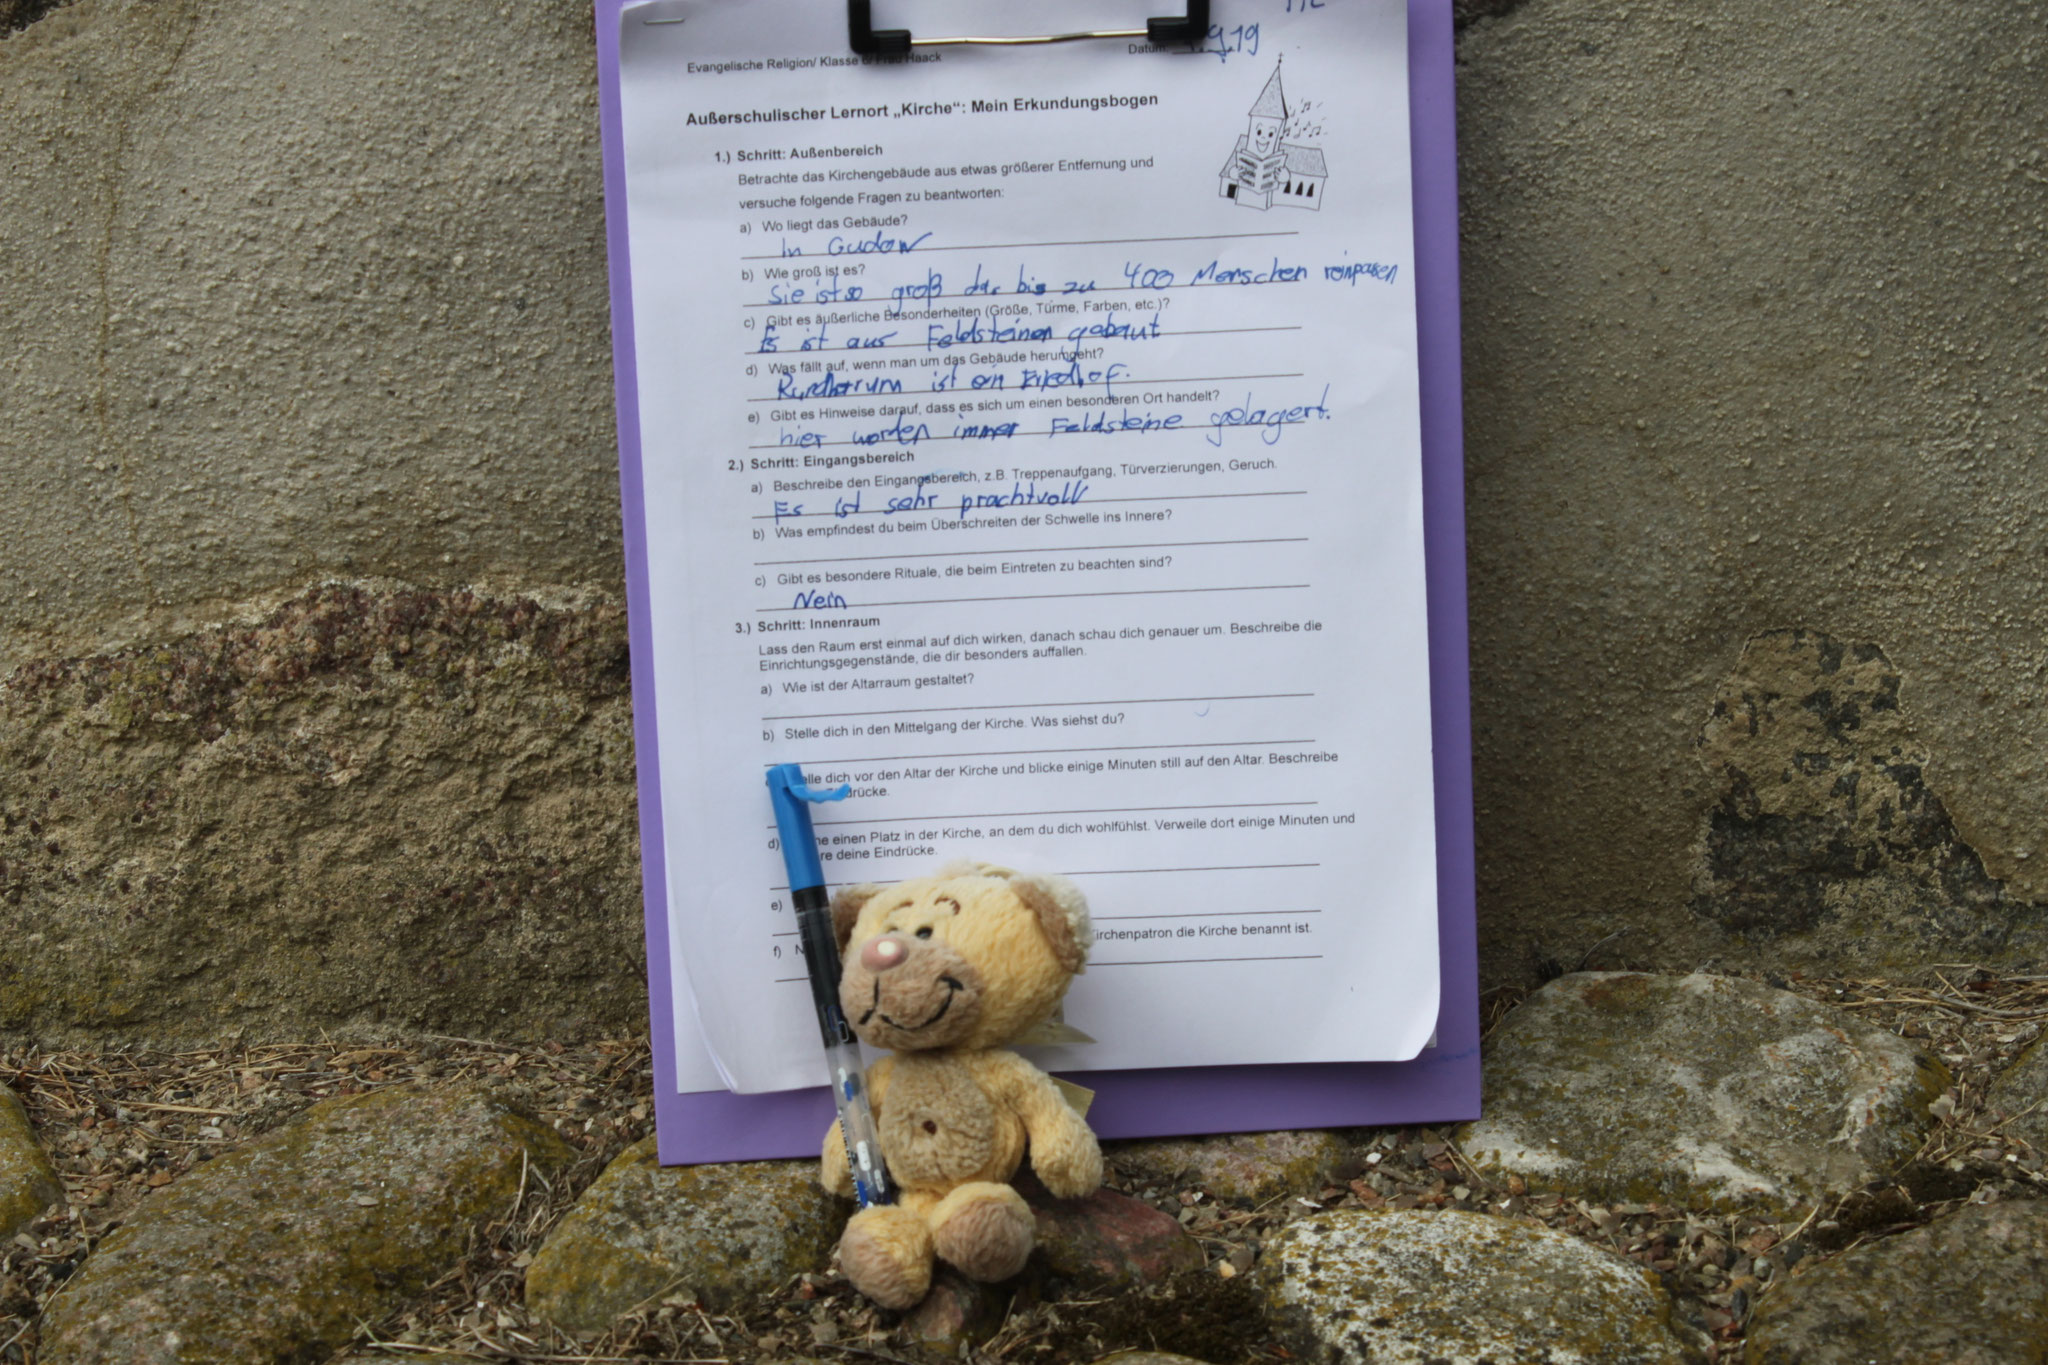 Evangelische Religion/ Klasse 6/ Frau Haack
Datum: 9.19
Außerschulischer Lernort „Kirche“: Mein Erkundungsbogen
1.) Schritt: Außenbereich
Betrachte das Kirchengebäude aus etwas größerer Entfernung und
versuche folgende Fragen zu beantworten:
a) Wo liegt das Gebäude?
In Gudow
b) Wie groß ist es?
Sie ist so groß das bis zu 400 Menschen reinpasen
c) Gibt es äußerliche Besonderheiten (Größe, Türme, Farben, etc.)?
Es ist aus Feldsteinen gebaut
d) Was fällt auf, wenn man um das Gebäude herumgeht?
Rundherrum ist ein Friedhof.
e) Gibt es Hinweise darauf, dass es sich um einen besonderen Ort handelt?
hier worden immer Feldsteine gelagert.
2.) Schritt: Eingangsbereich
a) Beschreibe den Eingangsbereich, z.B. Treppenaufgang, Türverzierungen, Geruch.
Es ist sehr prachtvoll
b) Was empfindest du beim Überschreiten der Schwelle ins Innere?
c) Gibt es besondere Rituale, die beim Eintreten zu beachten sind?
Nein
3.) Schritt: Innenraum
Lass den Raum erst einmal auf dich wirken, danach schau dich genauer um. Beschreibe die
Einrichtungsgegenstände, die dir besonders auffallen.
a) Wie ist der Altarraum gestaltet?
b) Stelle dich in den Mittelgang der Kirche. Was siehst du?
dich vor den Altar der Kirche und blicke einige Minuten still auf den Altar. Beschreibe
d) einen Platz in der Kirche, an dem du dich wohlfühlst. Verweile dort einige Minuten und
deine Eindrücke.
e)
f) Kirchenpatron die Kirche benannt ist.